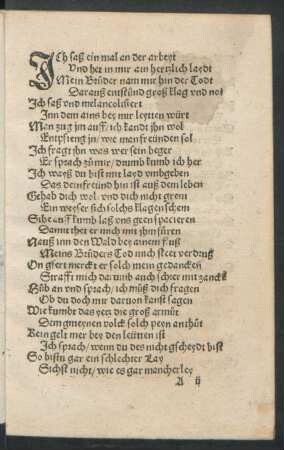 ICh saß ein mal an der arbeyt
Vnd het in mir ain hertzlich laydt
Mein Brüder nam mir hin der Todt
Darauß entstünd groß klag vnd not
Ich saß vnd melancolisiert
Inn dem ains bey mir leytten würt
Man zug jm auff / ich kandt jhn wol
Entpfieng jn / wie man freünden sol
Ich fragt jhn was wer sein beger
Er sprach zůmir / drumb kumb ich her
Ich wayß du bist mit layd vmbgeben
Das dein freünd hin ist auß dem leben
Gehab dich wol vnd dich nicht grem
Ein weyser sich solchs klagens schem
Sihe auff kumb laß vns geen spacieren
Damit thet er mich mit jhm füren
Nauß inn den Wald bey ainem fluß
Meins Brüders Tod mich steet verdruß
On gfert merckt er solch mein gedancken
Strafft mich darumb auch schier mit zancken
Hüb an vnd sprach / ich müß dich fragen
Ob du doch mir daruon kanst sagen
Wie kumbt das yetz die groß armüt
Dem gmeynen volck solch peyn anthüt
Kein gelt mer bey den leütten ist
Ich sprach / wenn du des nicht gscheydt bist
So bistu gar ein schlechter Lay
Sichst nicht / wie es gar mancherley
A ij